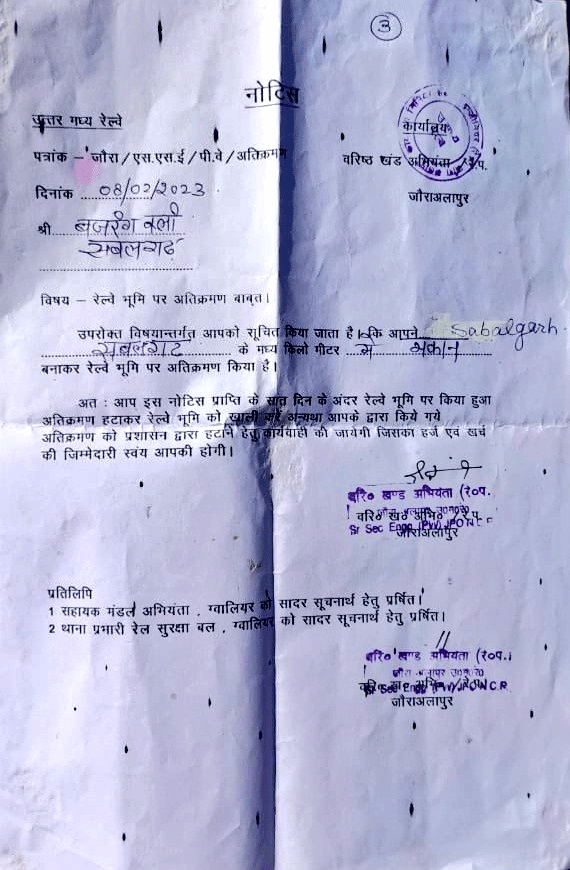 3
नोटिस
उत्तर मध्य रेल्वे
कार्यालय
पत्रांक – जौरा/एस.एस.ई/पी.वे/अतिक्रमण
वरिष्ठ खंड अभियंता /रे.प.
दिनांक 08/02/2023
जौराअलापुर
श्री बजरंग बली
सबलगढ़
विषय – रेल्वे भूमि पर अतिक्रमण बाबत्।
उपरोक्त विषयान्तर्गत आपको सूचित किया जाता है। कि आपने Sabalgarh
सबलगढ के मध्य किलो मीटर में मकान
बनाकर रेल्वे भूमि पर अतिक्रमण किया है।
अत : आप इस नोटिस प्राप्ति के सात दिन के अंदर रेल्वे भूमि पर किया हुआ
अतिक्रमण हटाकर रेल्वे भूमि को खाली करें अन्यथा आपके द्वारा किये गये
अतिक्रमण को प्रशासन द्वारा हटाने हेतु कार्यवाही की जायेगी जिसका हर्जे एवं खर्च
की जिम्मेदारी स्वंय आपकी होगी।
वरि० खण्ड अभियंता (र०प.
वरि० खं० अभि० /रे.प.
Sr Sec Engg (PW) JPO N C R
जौराअलापुर
प्रतिलिपि
1 सहायक मंडल अभियंता , ग्वालियर को सादर सूचनार्थ हेतु प्रर्षित।
2 थाना प्रभारी रेल सुरक्षा बल , ग्वालियर को सादर सूचनार्थ हेतु प्रर्षित।
वरि० खण्ड अभियंता (र०प.)
जौराअलापुर